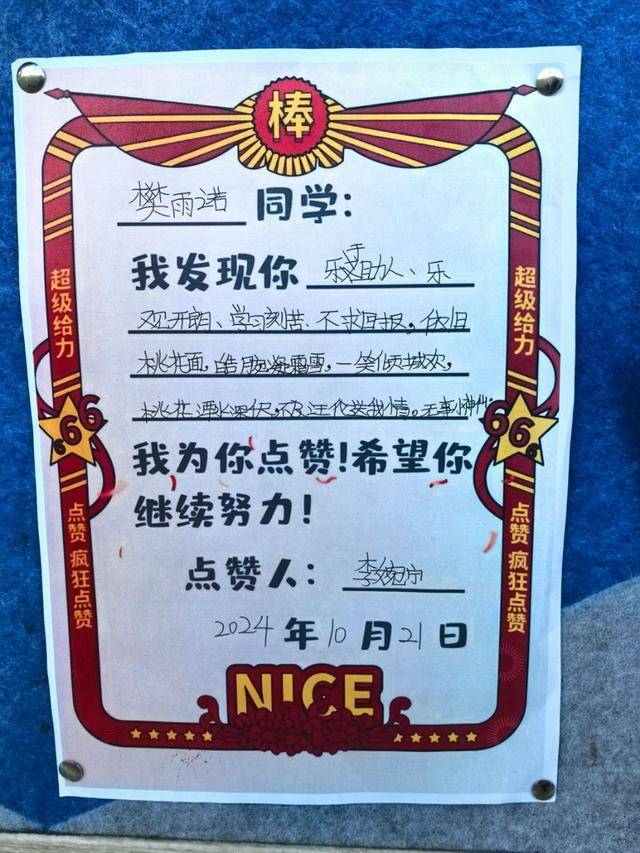 棒
樊雨诺 同学:
我发现你 乐于助人、乐
观开朗、学习刻苦、不求回报，依旧
桃花面，皓腕凝霜雪，一笑倾城欢，
桃花潭水深千尺，不及汪伦送我情。无事小神仙。
我为你点赞!希望你
继续努力!
点赞人: 李婉宁
2024 年 10 月 21 日
超级给力
666
点赞 疯狂点赞
超级给力
666
点赞 疯狂点赞
NICE